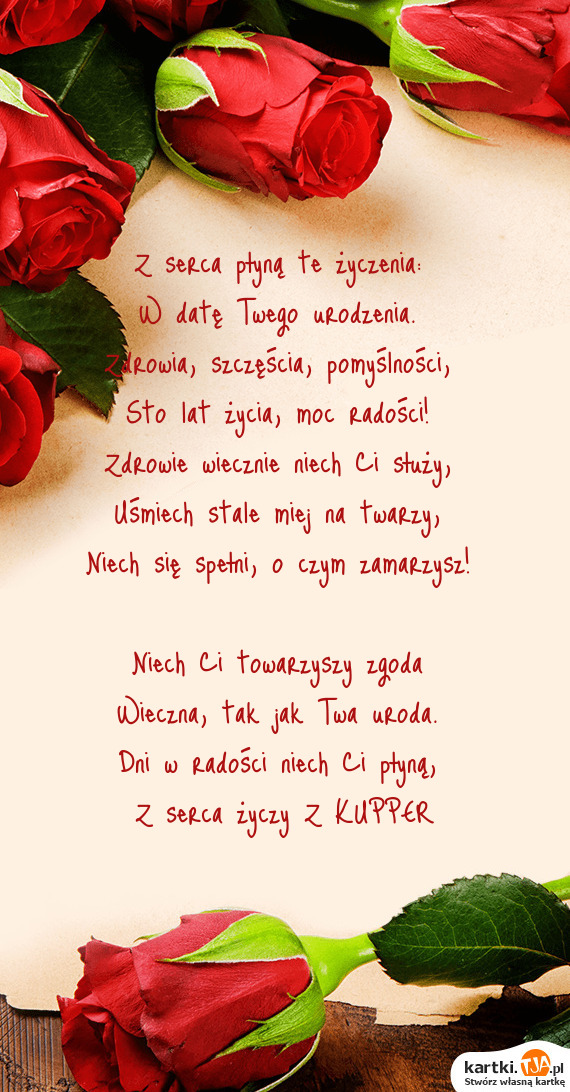 Z serca płyną te życzenia:
W datę Twego urodzenia.
Zdrowia, szczęścia, pomyślności,
Sto lat życia, moc radości!
Zdrowie wiecznie niech Ci służy,
Uśmiech stale miej na twarzy,
Niech się spełni, o czym zamarzysz!
Niech Ci towarzyszy zgoda
Wieczna, tak jak Twa uroda.
Dni w radości niech Ci płyną,
Z serca życzy Z KUPPER
kartki.TJA.pl
Stwórz własną kartkę